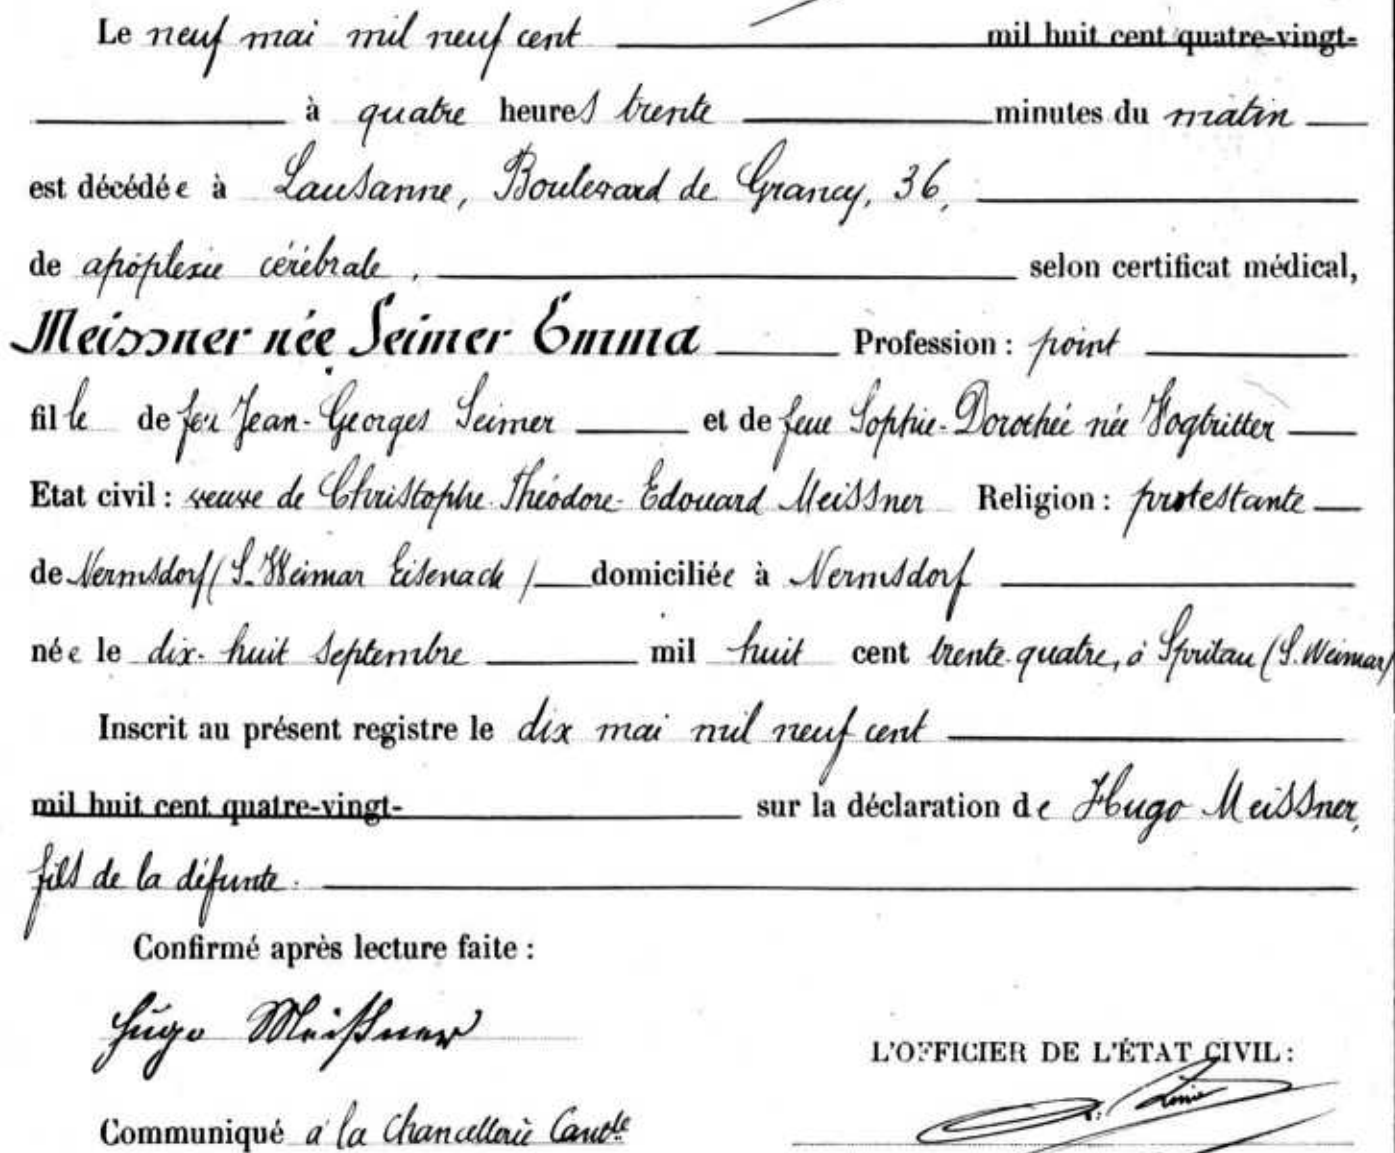 Le neuf mai mil neuf cent mil huit cent quatre-vingt-
à quatre heures trente minutes du matin
est décédée à Lausanne, Boulevard de Grancy, 36,
de apoplexie cérébrale, selon certificat médical,
Meissner née Seimer Emma Profession : point
fille de feu Jean-Georges Seimer et de feue Sophie-Dorothée née Vogtritter
Etat civil : veuve de Christophe-Théodore-Edouard Meissner Religion : protestante
de Nermsdorf (S. Weimar Eisenach) domiciliée à Nermsdorf
née le dix-huit septembre mil huit cent trente-quatre, à (S. Weimar)
Inscrit au présent registre le dix mai mil neuf cent
mil huit cent quatre-vingt- sur la déclaration de Hugo Meissner,
fils de la défunte.
Confirmé après lecture faite :
Hugo Meißner
L'OFFICIER DE L'ÉTAT CIVIL :
Communiqué à la Chancellerie Cantle